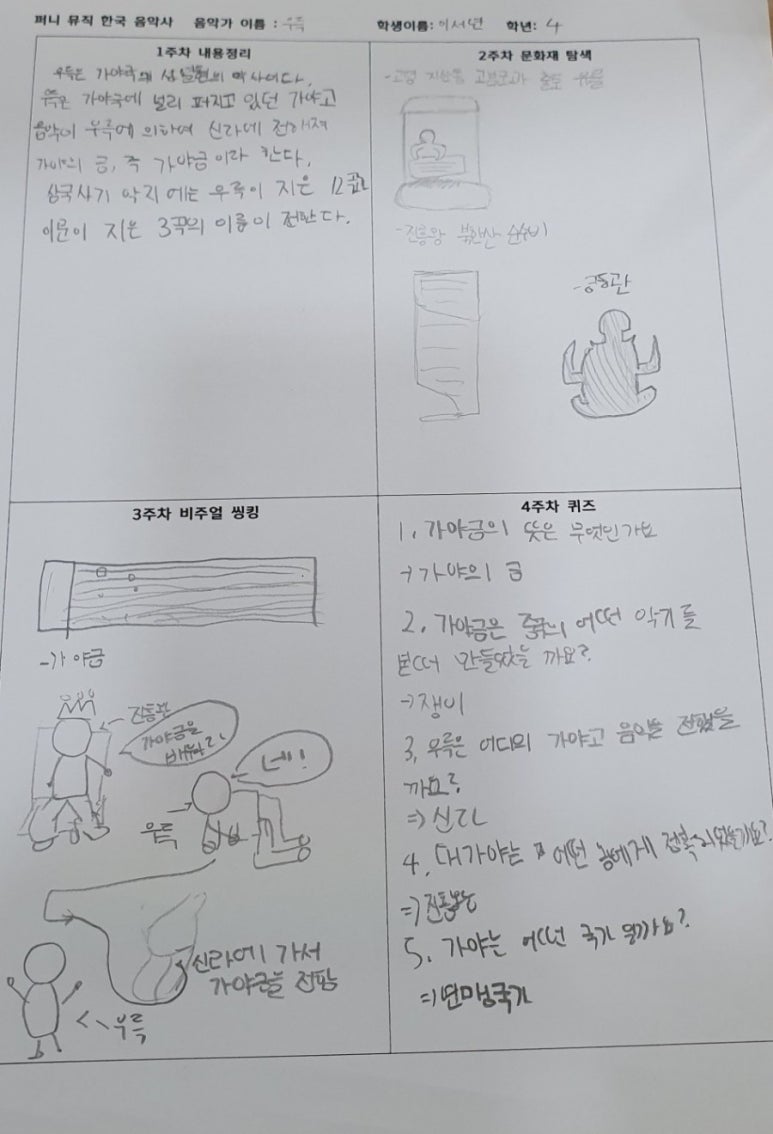 퍼니 뮤직 한국 음악사 음악가 이름 : 우륵 학생이름: 이서연 학년: 4
1주차 내용정리
우륵은 가야국의 성열현의 악사이다.
가야국에 널리 퍼지고 있던 가야고
음악이 우륵에 의하여 신라에 전해져
가야의 금, 즉 가야금이라 한다.
삼국사기 악지에는 우륵이 지은 12곡과
이문이 지은 3곡의 이름이 전한다.
2주차 문화재 탐색
-고령 지산동 고분군과 출토 유물
-진흥왕 북한산 순수비
-금동관
3주차 비주얼 씽킹
-가야금
진흥왕
가야금을
배워라!
네!
우륵
신라에 가서
가야금을 전파
우륵
4주차 퀴즈
1. 가야금의 뜻은 무엇인가요
→가야의 금
2. 가야금은 중국의 어떤 악기를
본떠 만들었을 까요?
→쟁이
3. 우륵은 어디의 가야고 음악을 전했을
까요?
⇒신라
4. 대가야는 어떤 왕에게 정복되었을까요?
⇒진흥왕
5. 가야는 어떤 국가 일까요?
⇒연맹국가